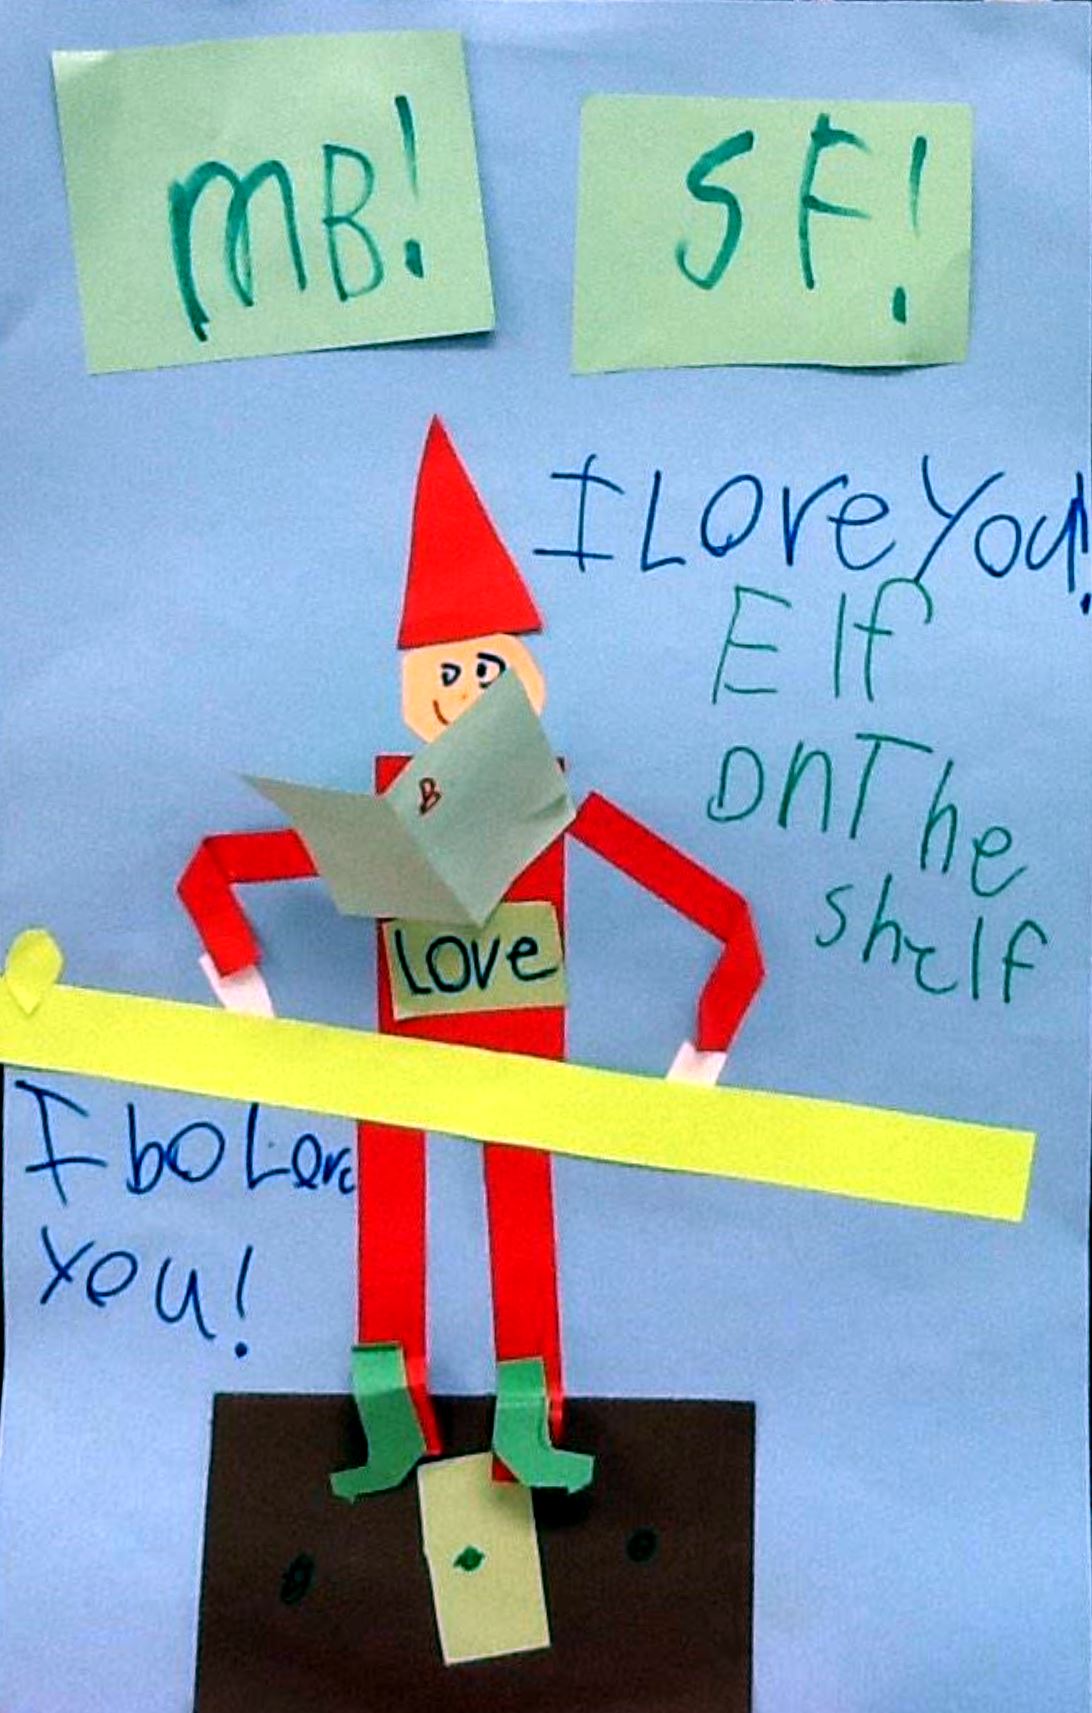 MB! SF!
I Love You!
Elf
On The
shelf
B
Love
I bo Love
You!